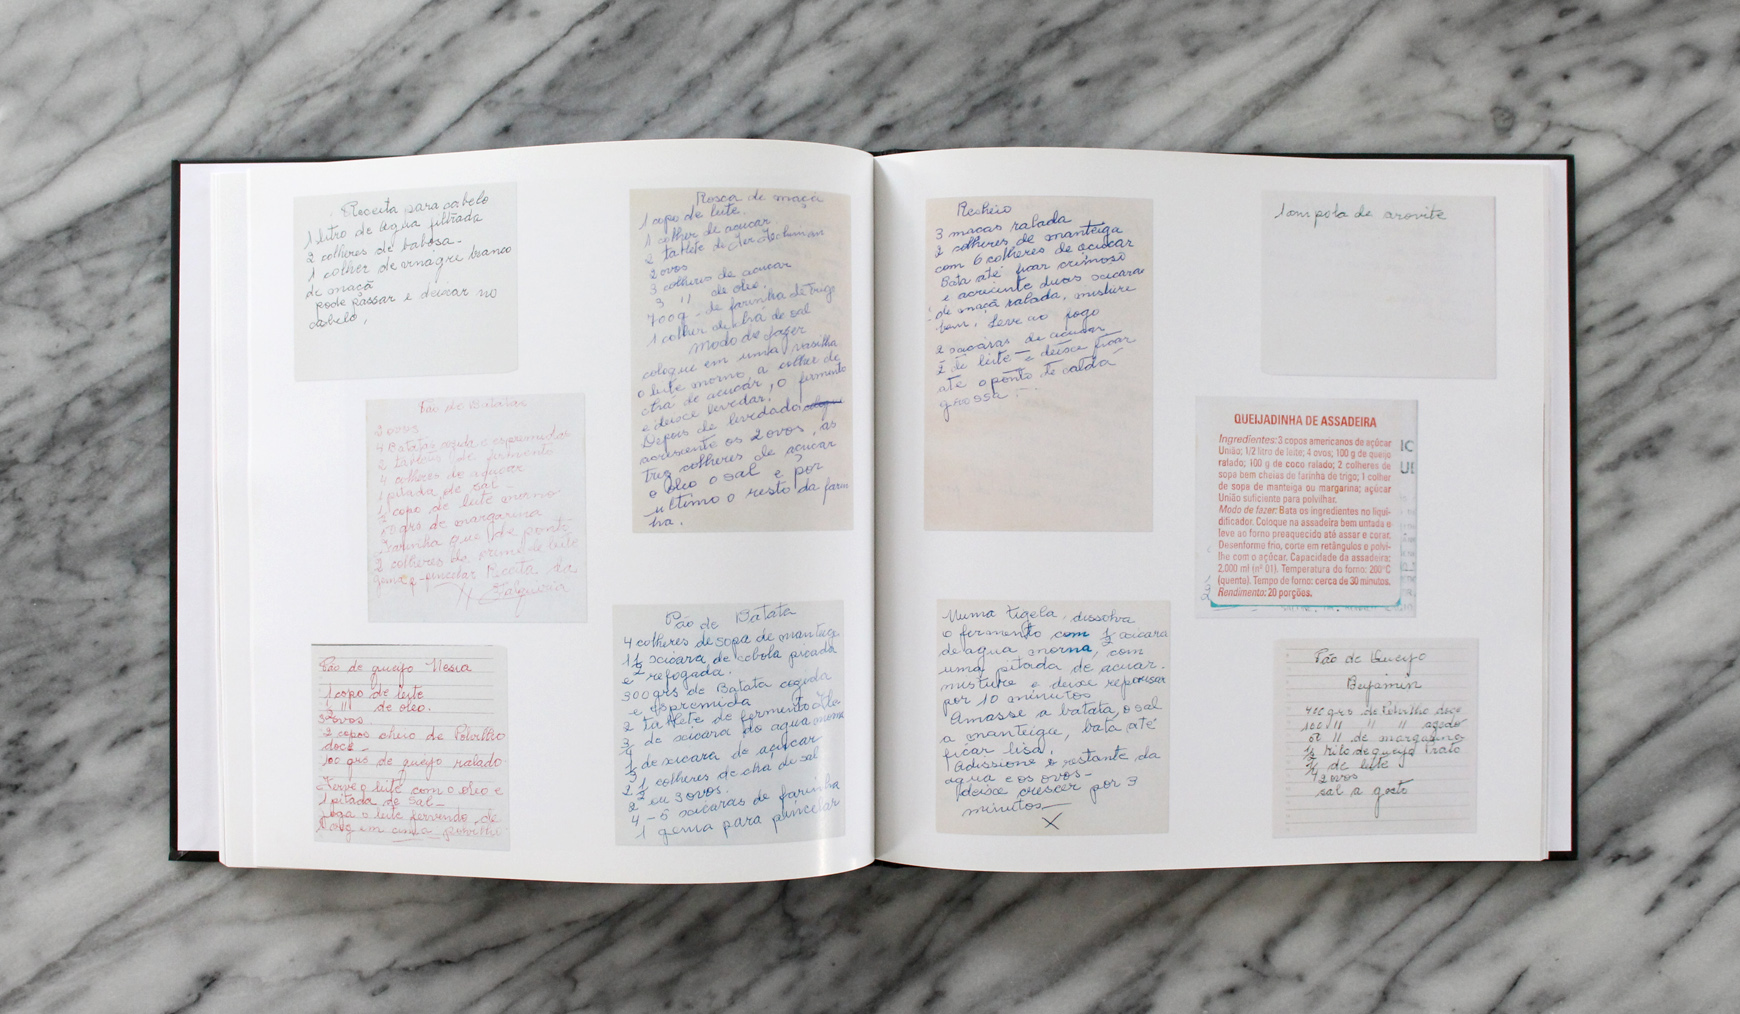 Receita para cabelo
1 litro de água filtrada
2 colheres de babosa-
1 colher de vinagre branco
de maçã
pode passar e deixar no
cabelo,
Pão de Batatas
2 ovos
4 Batatas cozida e espremidas
2 tabletes de fermento
4 colheres de açucar
1 pitada de sal-
1 copo de leite morno
grs de margarina
farinha que de ponto-
2 colheres de creme de leite
gema p-pincelar Receita da
Pão de queijo Nesia
1 copo de leite
1 " de óleo.
3 ovos.
2 copos cheio de Polvilho
doce-
100 grs de queijo ralado
Ferve o leite com o óleo e
1 pitada de sal-
Joga o leite fervendo de
em cima polvilho
Rosca de maçã
1 copo de leite.
1 colher de açucar.
2 tablete de
2 ovos
3 colheres de açucar
3 " de óleo.
700g - de farinha de trigo
1 colher de chá de sal
modo de fazer
coloque em uma vasilha
o leite morno, a colher de
chá de açucar, o fermento
e deixe levedar.
Depois de levedado
acrescente os 2 ovos, as
tres colheres de açucar
o óleo o sal e por
ultimo o resto da farin
ha.
Pão de Batata
4 colheres de sopa de manteiga
1 1/2 xicara de cebola picada
e refogada.
300 grs de Batata cozida
e espremida
2 tablete de fermento
3/4 de xicara de agua morna
1/3 de xicara de açucar
2 1/2 colheres de chá de sal
2 ou 3 ovos.
4 - 5 xicaras de farinha
1 gema para pincelar
Recheio
3 macas ralada
2 colheres de manteiga
com 6 colheres de açucar
Bata até ficar cremoso
e acrecente duas xicara
de maçã ralada, misture
bem. Leve ao fogo
2 xicaras de açucar
1/2 de leite e deixe ficar
até o ponto de calda
grossa.
Numa tigela, dissolva
o fermento com 1/2 xicara
de agua morna, com
uma pitada de acucar.
misture e deixe repousar
por 10 minutos
Amasse a batata, o sal
a manteiga, bata até
ficar lisa.
Adissione o restante da
agua e os ovos-
deixe crescer por 3
minutos
X
1 ampola de arovite
QUEIJADINHA DE ASSADEIRA
Ingredientes: 3 copos americanos de açúcar
União; 1/2 litro de leite; 4 ovos; 100 g de queijo
ralado; 100 g de coco ralado; 2 colheres de
sopa bem cheias de farinha de trigo; 1 colher
de sopa de manteiga ou margarina; açúcar
União suficiente para polvilhar.
Modo de fazer: Bata os ingredientes no liqui-
dificador. Coloque na assadeira bem untada e
leve ao forno preaquecido até assar e corar.
Desenforme frio, corte em retângulos e polvi-
lhe com o açúcar. Capacidade da assadeira:
2.000 ml (nº 01). Temperatura do forno: 200°C
(quente). Tempo de forno: cerca de 30 minutos.
Rendimento: 20 porções.
Pão de Queijo
Benjamin
400 grs de Polvilho doce
100 " " " azedo
50 " de margarina
1/2 kilo de queijo Prato
de leite
2 ovos
sal a gosto